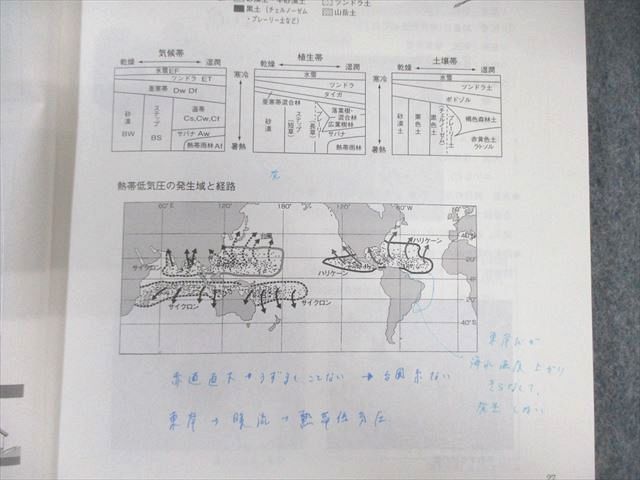 黒土(チェルノーゼム・
プレーリー土など)
ツンドラ土
山岳土
気候帯
植生帯
土壌帯
乾燥 湿潤
乾燥 湿潤
乾燥 湿潤
氷雪EF
ツンドラ ET
亜寒帯 Dw Df
砂漠
BW
ステップ
BS
温帯
Cs,Cw,Cf
サバナ Aw
熱帯雨林Af
寒冷
暑熱
氷雪
ツンドラ
タイガ
亜寒帯混合林
砂漠
ステップ(短草)
プレーリー(長草)
落葉樹・
混合林
広葉樹林
サバナ
熱帯雨林
寒冷
暑熱
氷雪
ツンドラ土
ポドゾル
砂漠土
栗色土
黒色土
(チェルノーゼム)
プレーリー土
褐色森林土
赤黄色土
ラトソル
熱帯低気圧の発生域と経路
60°E 120° 180° 120° 60°W
台風
サイクロン
サイクロン
サイクロン
ハリケーン
ハリケーン
40°N
20°
0°
20°
40°S
赤道直下→うずまくことない→台風来ない
東岸→暖流→熱帯低気圧
海水温度上がり
きらなくて、
発生しない
97